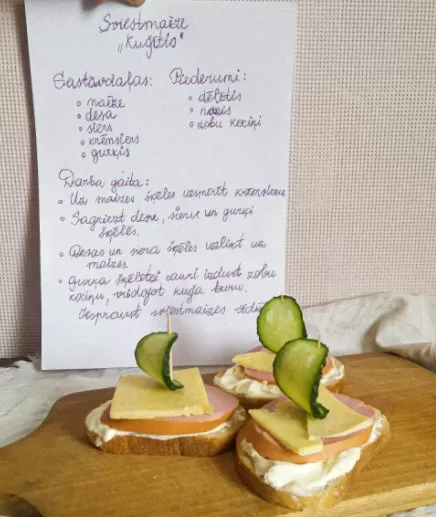 Sviestmaize
„Kuģītis"
Sastāvdaļas: Piederumi:
maize
desa
siers
krēmsiers
gurķis
dēlītis
nazis
zobu kociņi
Darba gaita:
Uz maizes šķēles uzsmērē krēmsieru
Sagriezt desu, sieru un gurķi
šķēlēs.
Desas un siera šķēles uzlikt uz
maizes.
Gurķa šķēlītei cauri izdurt zobu
kociņu, veidojot kuģa buru.
Iespraust sviestmaizes vidū